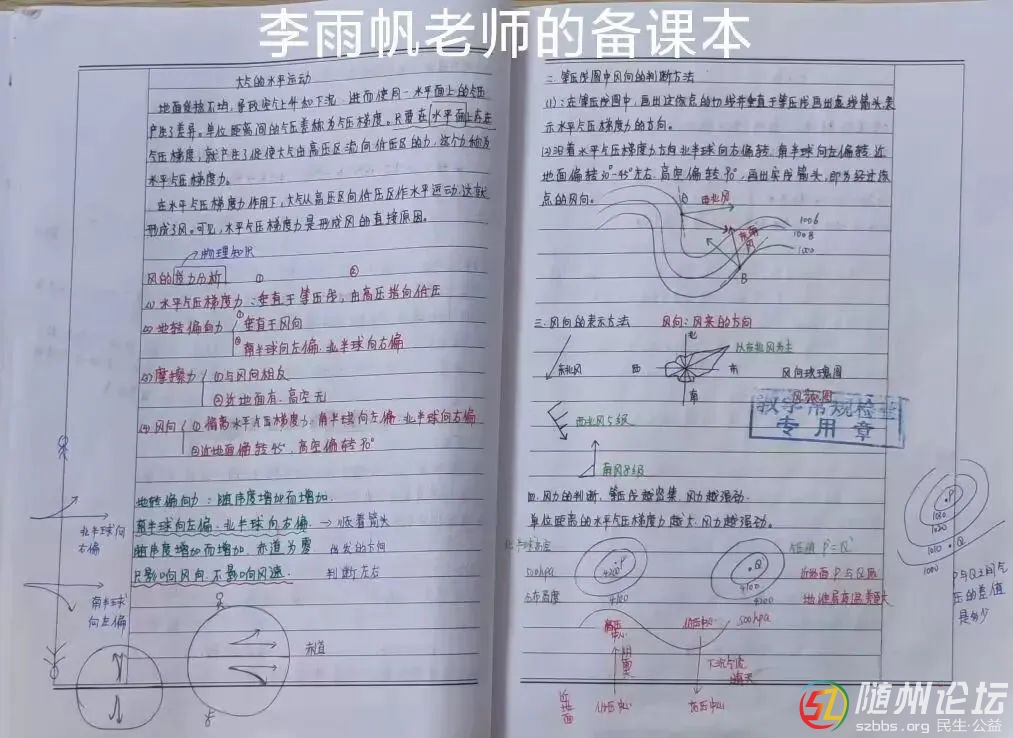 李雨帆老师的备课本
大气的水平运动
地面受热不均，导致空气上升和下沉，进而使同一水平面上的气压
产生了差异。单位距离间的气压差称为气压梯度。只要在水平面上存在
气压梯度，就产生了促使大气由高压区流向低压区的力，这个力称为
水平气压梯度力。
在水平气压梯度力作用下，大气从高压区向低压区作水平运动，这就
形成了风。可见，水平气压梯度力是形成风的直接原因。
物理知识
风的受力分析 ① ②
(1) 水平气压梯度力：垂直于等压线，由高压指向低压
(2) 地转偏向力 ①垂直于风向
②南半球向左偏，北半球向右偏
(3) 摩擦力 ①与风向相反
②近地面有，高空无
(4) 风向 ①偏离水平气压梯度力：南半球向左偏，北半球向右偏
②近地面偏转45°，高空偏转90°
地转偏向力：随纬度增加而增加.
南半球向左偏，北半球向右偏. → 顺着箭头
随纬度增加而增加，赤道为零 出发的方向
只影响风向，不影响风速. 判断左右
北半球向
右偏
南半球
向左偏
赤道
二、等压线图中风向的判断方法
(1)：在等压线图中，画出过该点的切线并垂直于等压线画出虚线箭头，表
示水平气压梯度力的方向。
(2) 沿着水平气压梯度力方向北半球向右偏转，南半球向左偏转，近
地面偏转30°-45°左右，高空偏转90°，画出实线箭头，即为经过该
点的风向。
西北风
东南
风
B
1006
1008
三、风向的表示方法 风向：风来的方向
北
以东北风为主
东北风
西
南
风向玫瑰图
风频图
西北风5级
南风8级
教学常规检查
专用章
四、风力的判断：等压线越密集，风力越强劲.
单位距离的水平气压梯度力越大，风力越强劲。
500hpa
P
4100
Q
4100
4200
500hpa
下沉气流
晴天
近
地
面
低压中心
高压中心
P
1020
1010
Q
1000
P与Q之间气
压的差值
是多少
随州论坛
szbbs.org 民生·公益